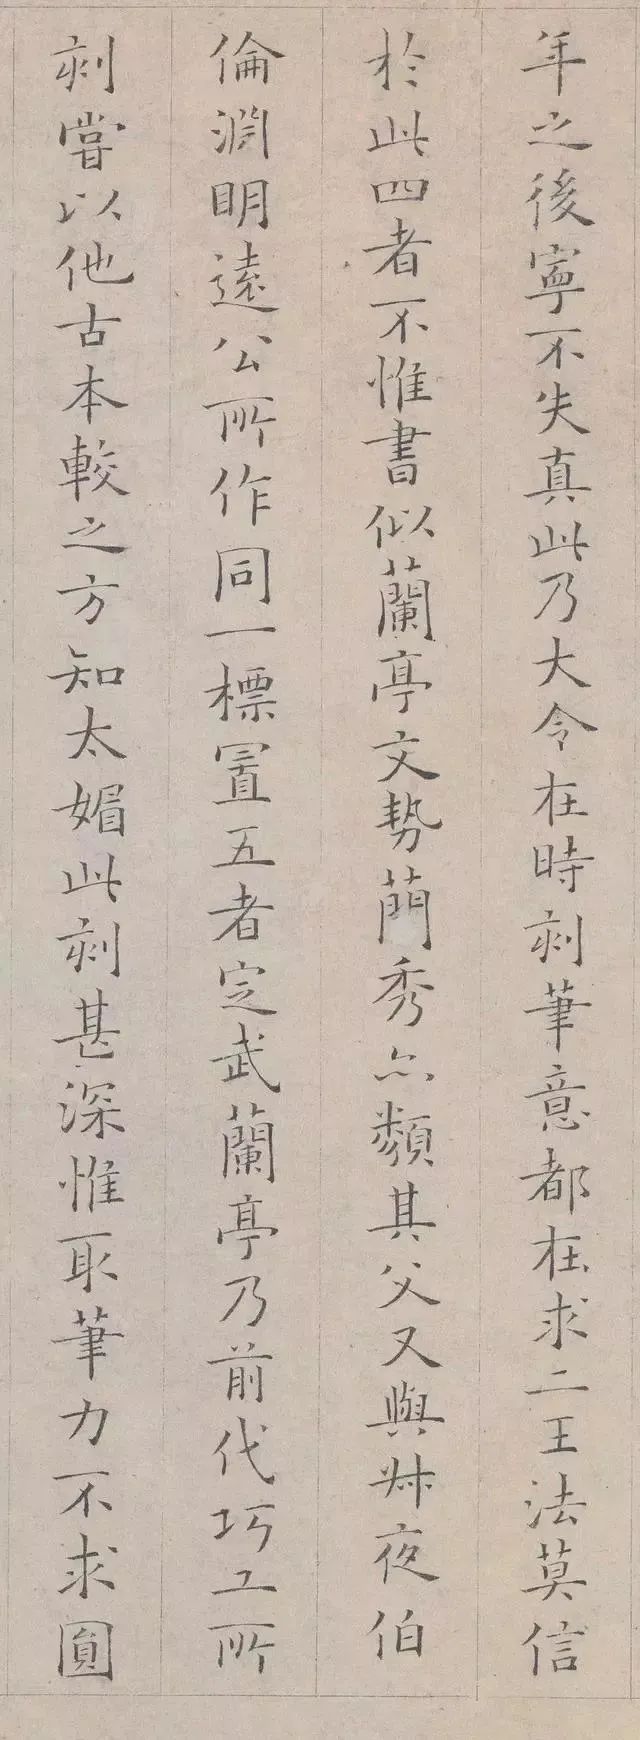 年之後寧不失真此乃大令在時刻筆意都在求二王法莫信
於此四者不惟書似蘭亭文勢蕳秀亦類其父又與叔夜伯
倫淵明遠公所作同一標置五者定武蘭亭乃前代巧工所
刻嘗以他古本較之方知太媚此刻甚深惟取筆力不求圓